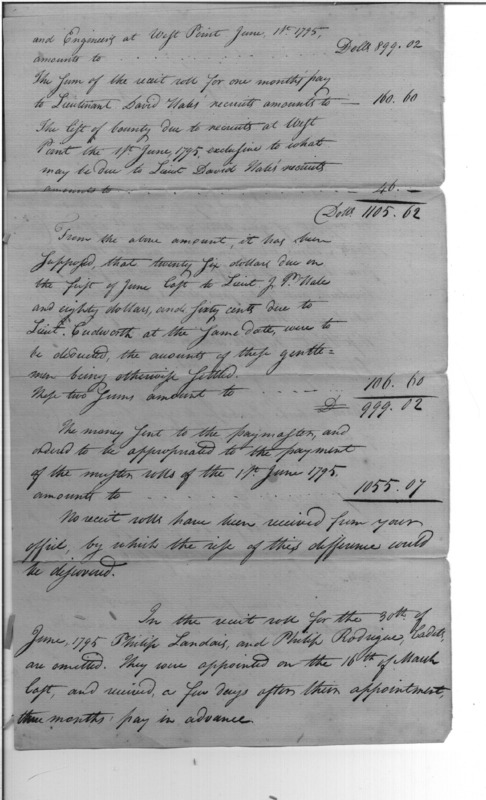 and Engineers at West Point June, 1st 1795,
amounts to . . . . . Dolls 899.02
The sum of the receit roll for one months pay
to Lieutenant David Hales recruits amounts to — 160.60
The list of bounty due to recruits at West
Point the 1st June, 1795, exclusive to what
may be due to Lieut David Hales' recruits
amounts to . . . . . 46. —
Dolls 1105.62
From the above amount, it has been
supposed, that twenty six dollars due on
the first of June last to Lieut J. P. Hale
and eighty dollars, and sixty cents due to
Lieut. Cudworth at the same date, were to
be deducted, the amounts of these gentle=
men being otherwise settled.
These two sums amount to . . . . . 106.60
D 999.02
The money sent to the paymaster, and
ordered to be appropriated to the payment
of the muster rolls of the 1st June 1795.
amounts to . . . . . 1055.07
No receit rolls have been received from your
office, by which the rise of this difference would
be discovered.
In the receit roll for the 30th of
June, 1795 Philip Landais, and Philip Rodrigue, Cadets,
are omitted. They were appointed on the 16th of March
last, and received, a few days after their appointment,
three months' pay in advance.